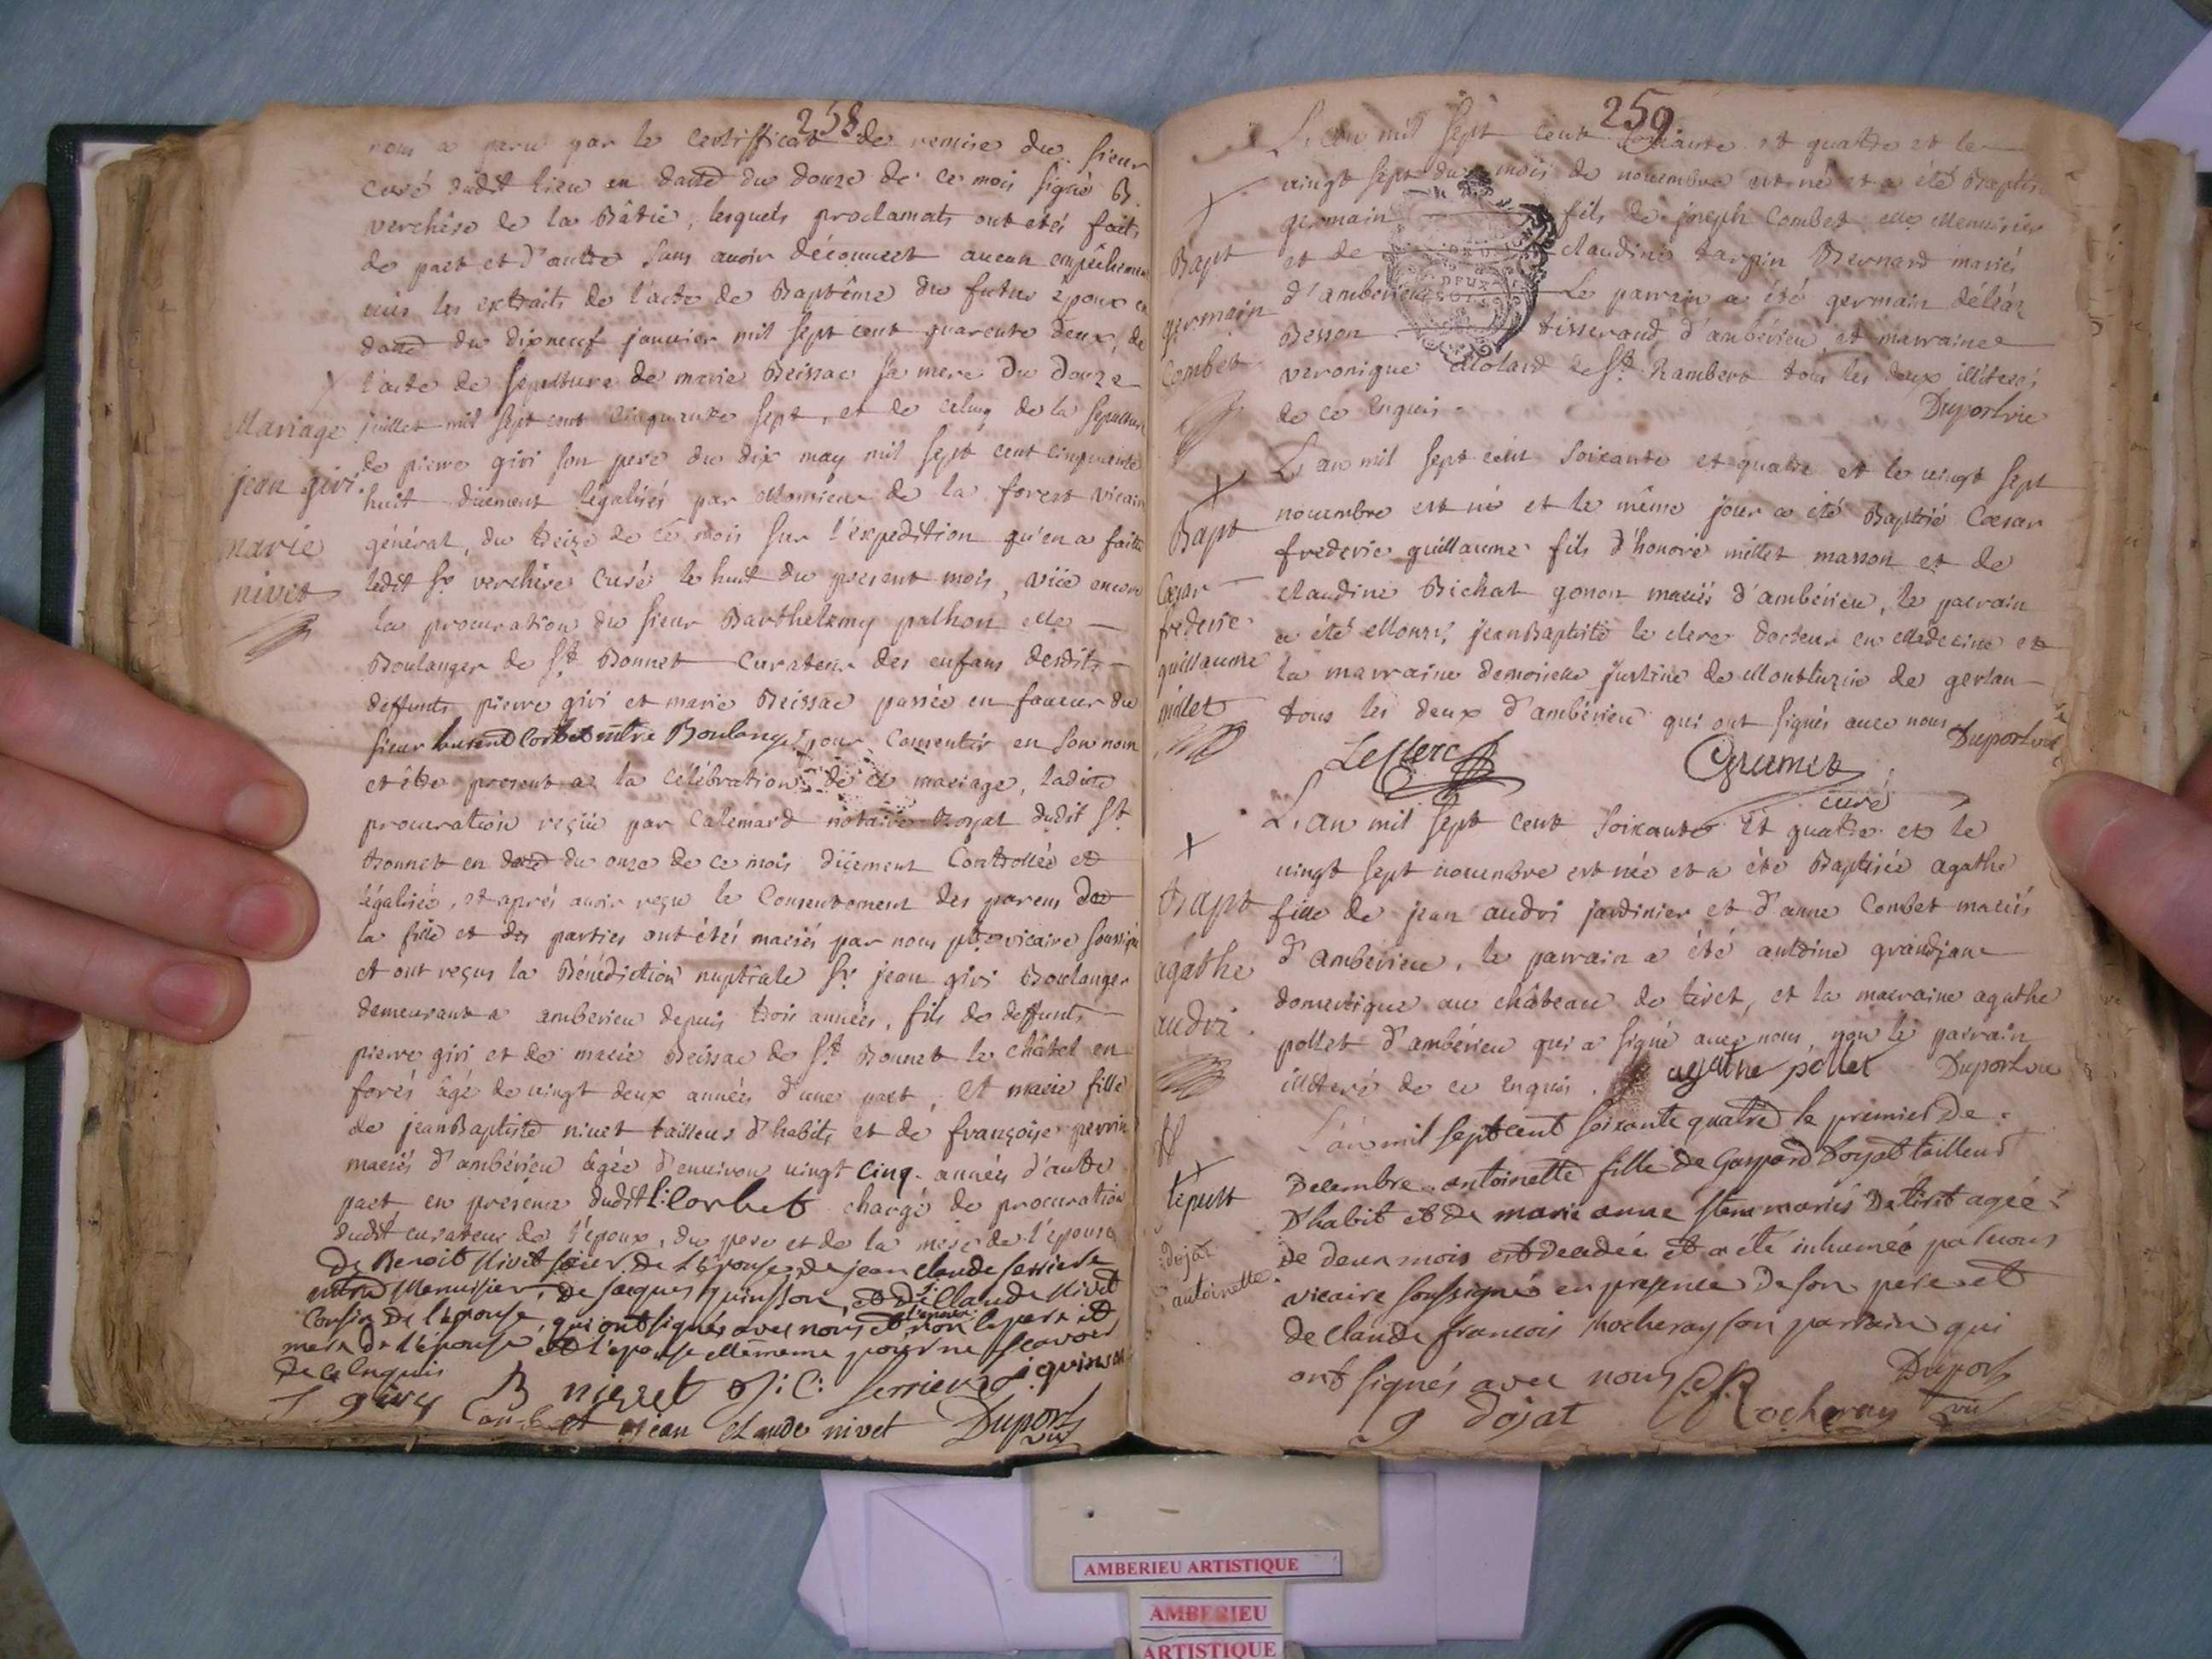 258
nous a paru par le certifficat de remise du sieur
curé dudit lieu en datte du douze de ce mois signé B.
verchère de la Bâtie, lesquels proclamats ont étés faits
de part et d'autre sans avoir découvert aucun empêchement
vüs les extraits de l'acte de Baptême du futur époux en
datte du dixneuf janvier mil sept cent quarente deux, de
l'acte de sepulture de marie Beissac sa mere du douze
juillet mil sept cent cinquante sept, et de celuy de la sepulture
de pierre giri son pere du dix may mil sept cent cinquante
huit düement légalisés par Monsieur de la forest vicaire
général, du treize de ce mois sur l'expedition qu'en a faitte
ledit Sr. verchère Curé le huit du present mois, vüe encore
la procuration du sieur Barthelemy pathon Me
Boulanger de St. Bonnet Curateur des enfans desdits
deffunts pierre giri et marie Beissac passée en faveur du
sieur laurent Corbet mtre Boulanger pour consentir en son nom
et être present a la célébration de ce mariage, ladite
procuration reçüe par Calemard notaire Royal dudit St.
Bonnet en datte du onze de ce mois düement Controllée et
légalisée, et après avoir reçu le Consentement des parens de
la fille et des parties ont étés mariés par nous ptre vicaire soussigné
et ont reçus la Bénédiction nuptiale Sr. jean giri Boulanger
demeurant a amberieu depuis trois années, fils de deffunts
pierre giri et de marie Beissac de St. Bonnet le châtel en
forés âgé de vingt deux années d'une part, et marie fille
de jean Baptiste nivet tailleur d'habits et de françoise perrin
mariés d'ambérieu âgée d'environ vingt cinq années d'autre
part, en présence dudit l: Corbet chargé de procuration
dudit curateur de l'époux, du pere et de la mere de l'épouse
de Benoit Nivet frère de l'épouse, de jean claude serriere
mtre Menuisier, de jacques quinson, et de Claude Nivet
Cousin de l'épouse, qui ont signés avec nous et non le pere et
mere de l'épouse et l'épouse ellemême pour ne sçavoir
de ce Enquis
J giry B nivet J: C: serriere j quinson
Corbet jean claude nivet Duport
vic
Mariage
jean giri
marie
nivet
259
L'an mil sept cent soixante et quattre et le
vingt sept du mois de novembre est né et a été Baptisé
germain fils de joseph Combet Me Menuisier
et de claudine tarpin Bernard mariés
d'amberieu Le parrain a été germain déléaz
Besson tisserand d'ambérieu, et marraine
veronique Molard de St. Rambert tous les deux illiterés
de ce Enquis. Duport vic
Bapt
germain
Combet
L'an mil sept cent soixante et quatre et le vingt sept
novembre est né et le même jour a été Baptisé Cæsar
frederic guillaume fils d'honoré millet masson et de
claudine Bichat gonon mariés d'ambérieu, le parrain
a été Monsr. jean Baptiste le clerc docteur en Medecine et
la marraine demoiselle justine de Montluzin de gerlan
tous les deux d'ambérieu qui ont signés avec nous Duport vic
LeClerc Grumet
curé
Bapt
Cæsar
frederic
guillaume
millet
L'an mil sept cent soixante et quattre et le
vingt sept novembre est née et a été Baptisée agathe
fille de jean audri jardinier et d'anne Combet mariés
d'Ambérieu, le parrain a été antoine grandjane
domestique au château de tiret, et la marraine agathe
pollet d'ambérieu qui a signé avec nous, non le parrain
illiteré de ce enquis. agathe pollet Duport vic
Bapt
agathe
audri
L'an mil sept cent soixante quatre le premier de
Decembre antoinette fille de Gaspard Dojat tailleur
D'habit et de marie anne mariés De tiret agée
de deux mois est decedée et a été inhumée par nous
vicaire soussigné en presence De son pere et
de claude françois Rocheray son parrain qui
ont signés avec nous Duport
g Dojat C F Rocheray vic
sepult
dojat
antoinette
AMBERIEU ARTISTIQUE
AMBERIEU
ARTISTIQUE